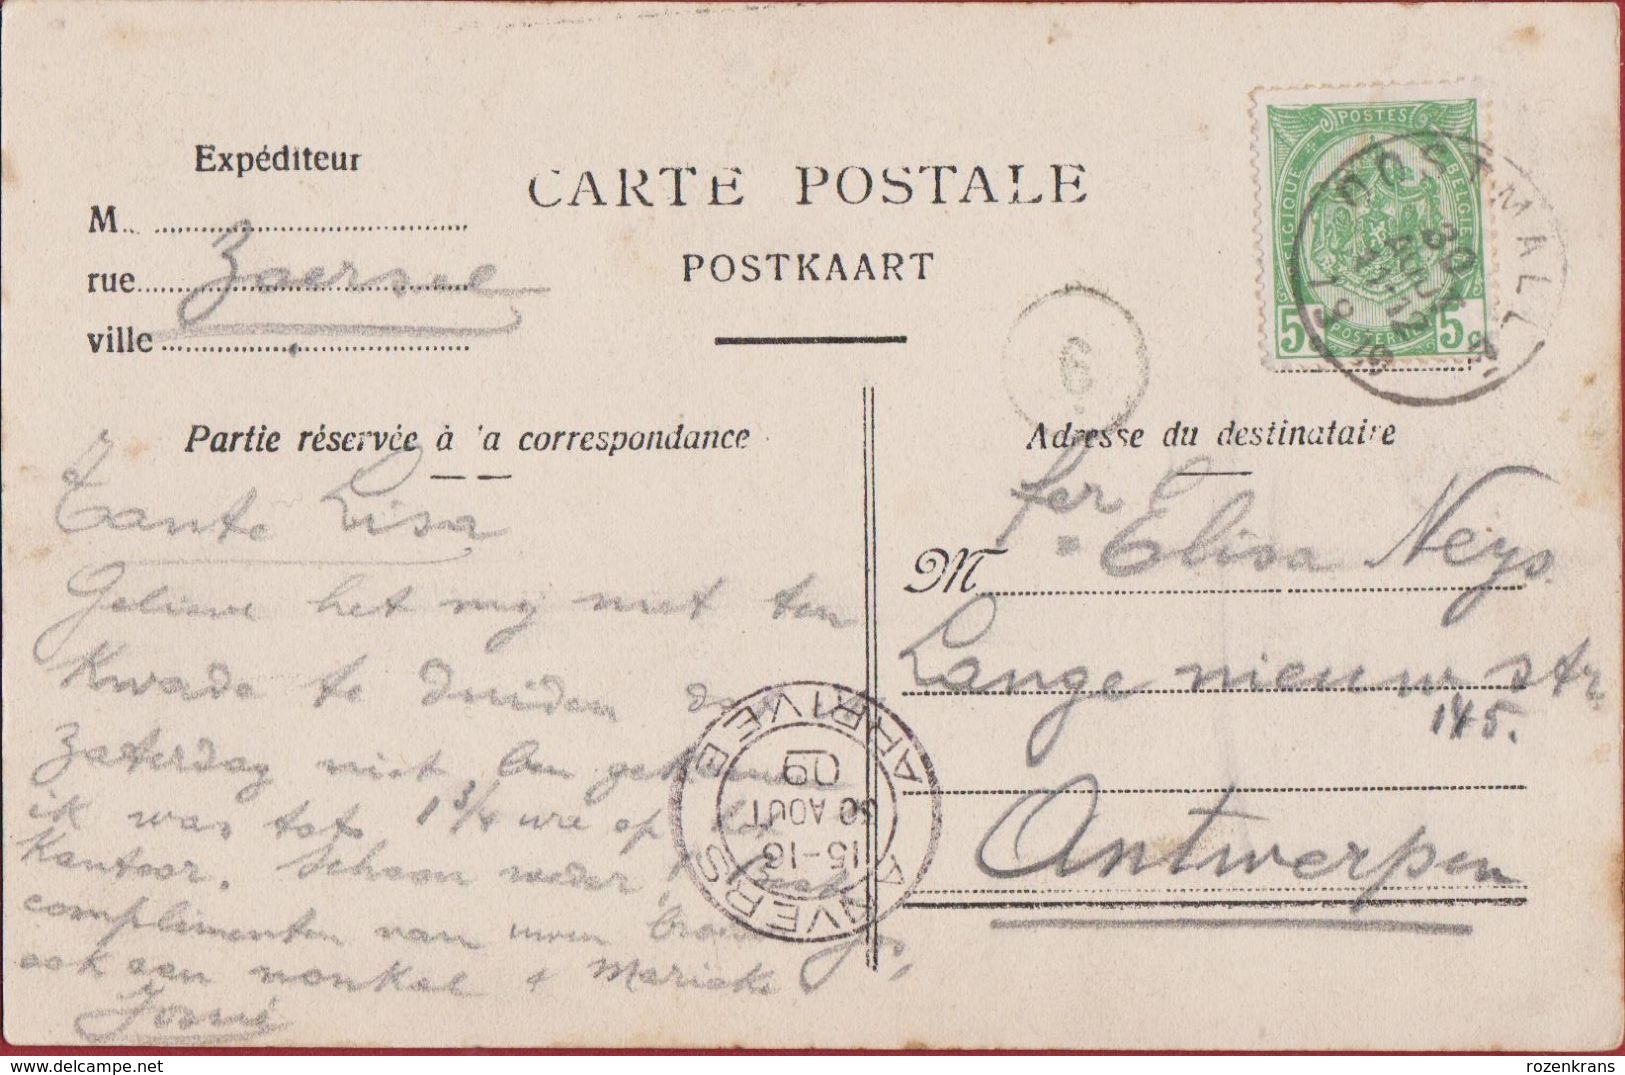 Expéditeur
M
rue Zoersel
ville
CARTE POSTALE
POSTKAART
POSTES
BELGIQUE
BELGIE
POSTERIJEN
5 c 5 c
OOSTMALLE
30
AOUT
19 09
6
Partie réservée à 'a correspondance
Adresse du destinataire
Tante Lisa
Gelieve het mij niet ten
Kwade te duiden dat
Zaterdag niet ben gekomen
ik was tot 1 3/4 ure op het
Kantoor. Schoon weder!
complimenten van uwen Jos,
ook aan nonkel + Marieke
José
Per
M Elisa Neys
Lange nieuw str
145.
Antwerpen
ANVERS
15-16
30 AOUT
09
ARRIVEE
delcampe.net
rozenkrans